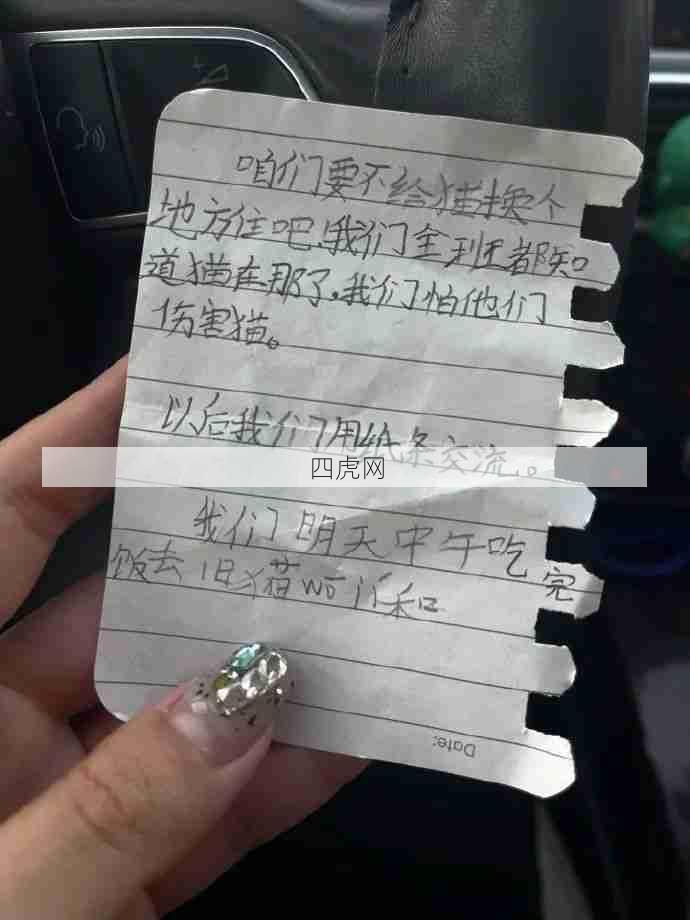 咱们要不给猫换个
地方住吧!我们全班都知
道猫在那了.我们怕他们
伤害猫。
以后我们用纸条交流。
四虎网
我们明天中午吃完
饭去旧猫wō 集和
Date: